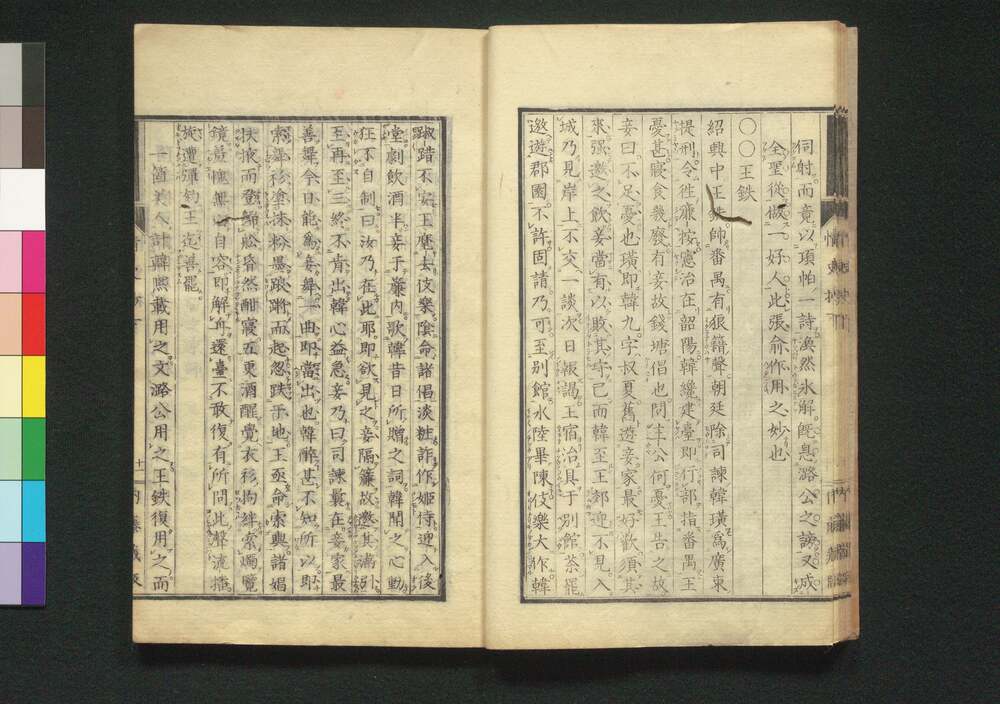 伺射而竟以項帕一詩渙然氷解既息潞公之謗又成
全聖從做一好人此張俞作用之妙也
〇〇王鉄
紹興中王鉄帥番禺有狼籍聲朝廷除司諫韓璜爲廣東
提刑令徃廉按憲治在韶陽韓纔建臺即行部指番禺王
憂甚寢食幾廢有妾故錢塘倡也問主公何憂王告之故
妾曰不足憂也璜即韓九字叔夏舊遊妾家最好歡須其
來强邀之飲妾當有以敗其守已而韓至王郊迎不見入
城乃見岸上不交一談次日報謁王宿治具于別館茶罷
邀遊郡圃不許固請乃可至別館水陸畢陳伎樂大作韓
踧踖不安王麾去伎樂陰命諸倡淡粧詐作姬侍迎入後
堂劇飲酒半妾于簾內歌韓昔日所贈之詞韓聞之心動
狂不自制曰汝乃在此耶即欲見之妾隔簾故邀其滿引
至再至三終不肯出韓心益急妾乃曰司諫曩在妾家最
善舞今日能爲妾舞一曲即當出也韓醉甚不知所以即
索舞衫塗抹粉墨踉蹡而起忽跌于地王亟命索輿諸娼
扶掖而登歸舩昏然酣寢五更酒醒覺衣衫拘絆索燭覽
鏡羞愧無以自容即解舟還臺不敢復有所問此聲流播
旋遭彈劾王迄善罷
一箇美人計韓熙載用之文潞公用之王鉄復用之而
十一